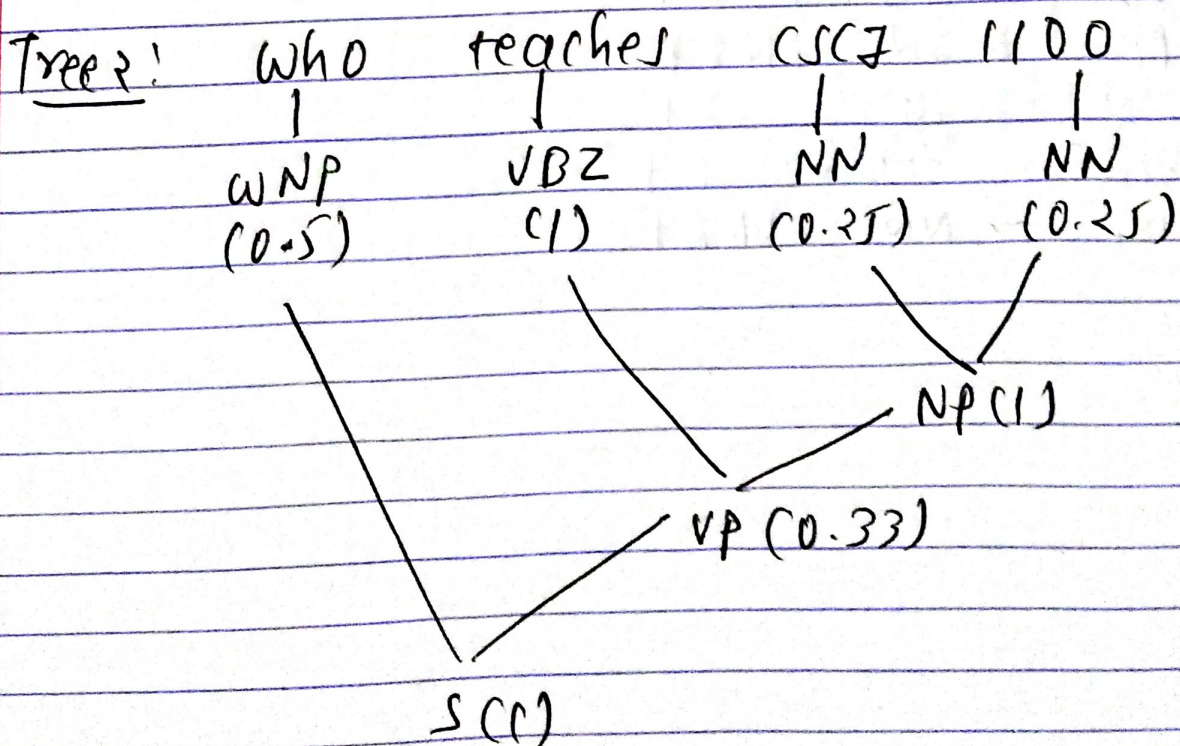 Tree 2: Who teaches CSCI 1100
WNP VBZ NN NN
(0.5) (1) (0.25) (0.25)
NP (1)
VP (0.33)
S (1)